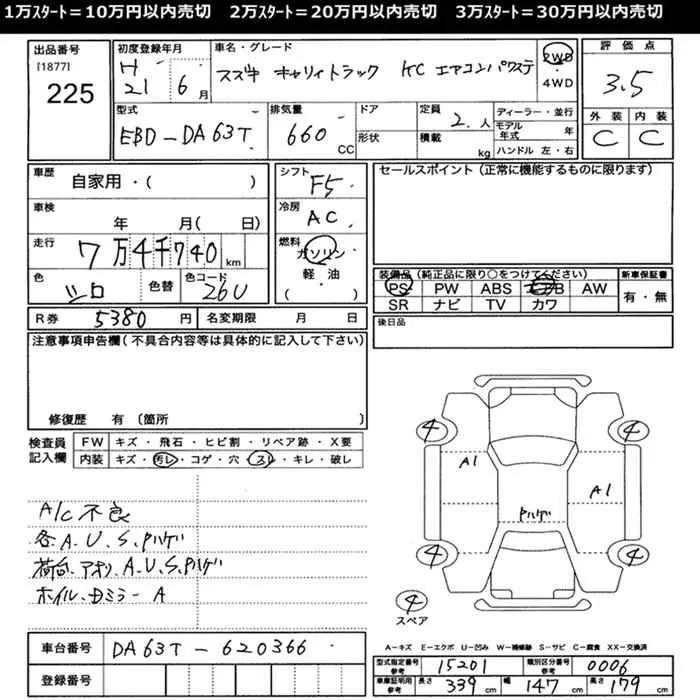 1万ｽﾀｰﾄ＝10万円以内売切　2万ｽﾀｰﾄ＝20万円以内売切　3万ｽﾀｰﾄ＝30万円以内売切
出品番号
[1877]
225
初度登録年月
H 21年 6月
車名・グレード
スズキ キャリィトラック KC エアコン パワステ
2WD
・4WD
評価点
3.5
型式
EBD-DA63T
排気量
660 CC
ドア
形状
定員
2.人
積載
kg
ディーラー・並行
モデル年式 年
ハンドル 左・右
外装 内装
C C
車歴
自家用・( )
シフト
F5
セールスポイント (正常に機能するものに限ります)
車検
年 月( 日)
冷房
AC
走行
7万4千740km
燃料
ガソリン
軽・油
・( )
色
シロ
色替
色コード
26U
装備品 (純正品に限り○をつけてください)
PS PW ABS AW
SR ナビ TV カワ
新車保証書
有・無
R券 5380円
名変期限 月 日
後日品
注意事項申告欄(不具合内容等は具体的に記入して下さい)
修復歴 有 (箇所
検査員記入欄
FW キズ・飛石・ヒビ割・リペア跡・X要
内装 キズ・汚レ・コゲ・穴・スレ・キレ・破レ
A/C 不良
各.A.U.S.Pハゲ
荷台.アオリ.A.U.S.Pハゲ
ホイル.Dミラー A
4 4
A1
A1
Pハゲ
4 4
4
スペア
A－キズ E－エクボ U－凹み W－補修跡 S－サビ C－腐食 XX－交換済
車台番号
DA63T-620366
登録番号
型式指定番号
参考
15201
類別区分番号
参考
0006
車庫証明用
参考
長さ 339cm 幅 147cm 高さ 179cm